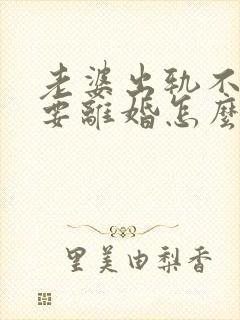 老婆出軌不
要離婚怎麼
里美由梨香